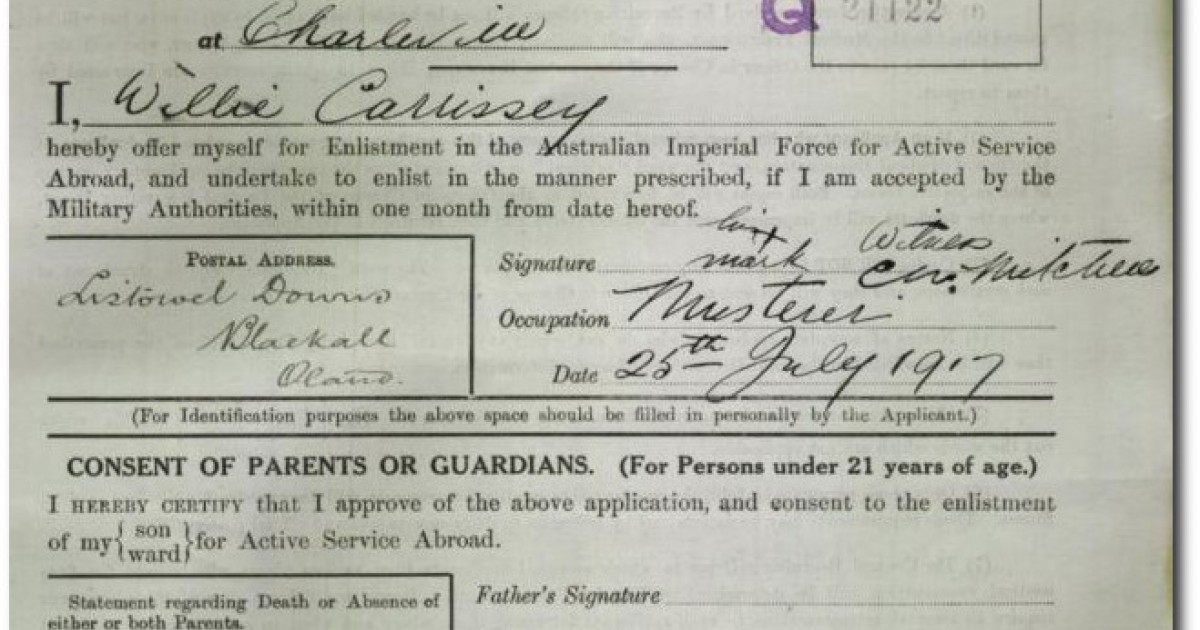 at Charleville
Q 21122
I, Willie Carrissey
hereby offer myself for Enlistment in the Australian Imperial Force for Active Service
Abroad, and undertake to enlist in the manner prescribed, if I am accepted by the
Military Authorities, within one month from date hereof.
POSTAL ADDRESS.
Listowel Downs
Blackall
Signature his x mark Witness Mitchell
Occupation Musterer
Date 25th July 1917
(For Identification purposes the above space should be filled in personally by the Applicant.)
CONSENT OF PARENTS OR GUARDIANS. (For Persons under 21 years of age.)
I HEREBY CERTIFY that I approve of the above application, and consent to the enlistment
of my { son ward } for Active Service Abroad.
Statement regarding Death or Absence of
either or both Parents.
Father's Signature